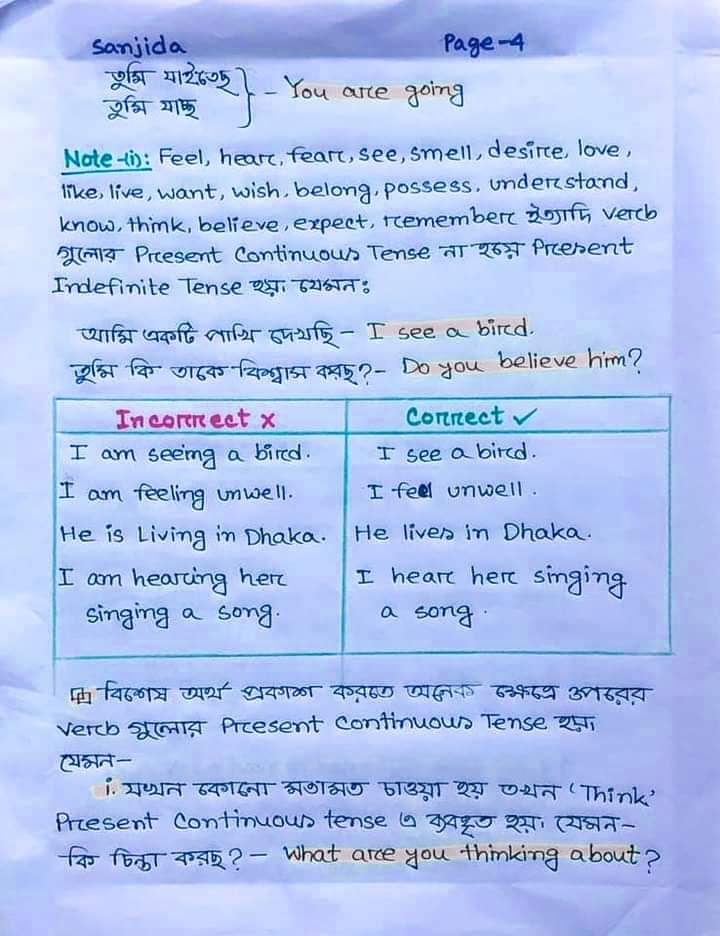 Sanjida Page-4
তুমি যাইতেছ
তুমি যাচ্ছ } - You are going
Note-(i): Feel, hear, fear, see, smell, desire, love,
like, live, want, wish, belong, possess, understand,
know, think, believe, expect, remember ইত্যাদি verb
গুলোর Present Continuous Tense না হয়ে Present
Indefinite Tense হয়। যেমন:
আমি একটি পাখি দেখছি - I see a bird.
তুমি কি তাকে বিশ্বাস করছ? - Do you believe him?
Incorrect x Correct ✓
I am seeing a bird. I see a bird.
I am feeling unwell. I feel unwell.
He is Living in Dhaka. He lives in Dhaka.
I am hearing her I hear her singing
singing a song. a song.
বিশেষ অর্থ প্রকাশ করতে অনেক ক্ষেত্রে উপরের
verb গুলোর Present Continuous Tense হয়।
যেমন-
i. যখন কোনো মতামত চাওয়া হয় তখন 'Think'
Present Continuous tense এ ব্যবহৃত হয়। যেমন-
কি চিন্তা করছ? - What are you thinking about?